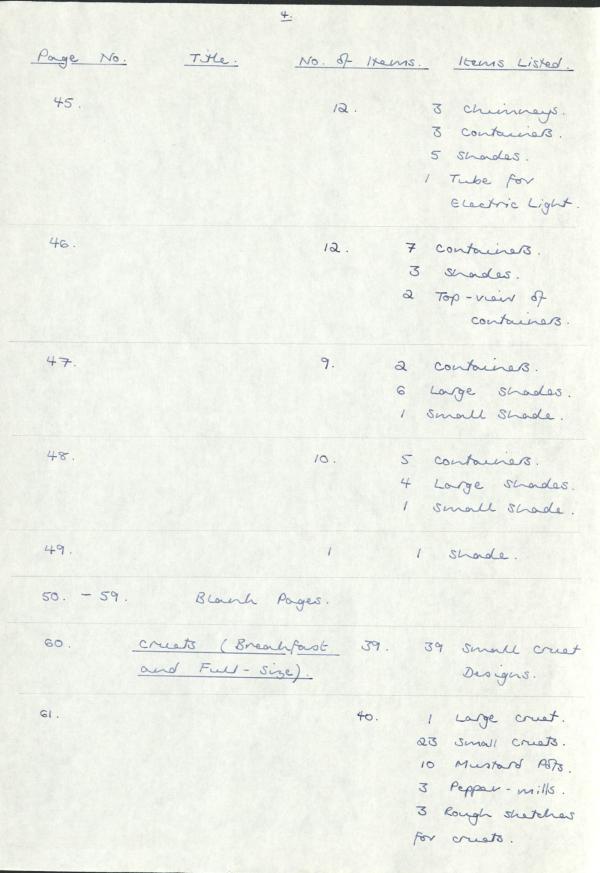 4.
Page No. Title. No. of Items. Items Listed.
45. 12. 3 Chimneys.
3 Containers.
5 Shades.
1 Tube for
Electric Light.
46. 12. 7 Containers.
3 Shades.
2 Top-view of
containers.
47. 9. 2 Containers.
6 Large Shades.
1 Small Shade.
48. 10. 5 Containers.
4 Large Shades.
1 Small Shade.
49. 1 1 Shade.
50. - 59. Blank Pages.
60. Cruets (Breakfast 39. 39 Small cruet
and Full-Size). Designs.
61. 40. 1 Large cruet.
23 Small Cruets.
10 Mustard Pots.
3 Pepper-mills.
3 Rough sketches
for cruets.